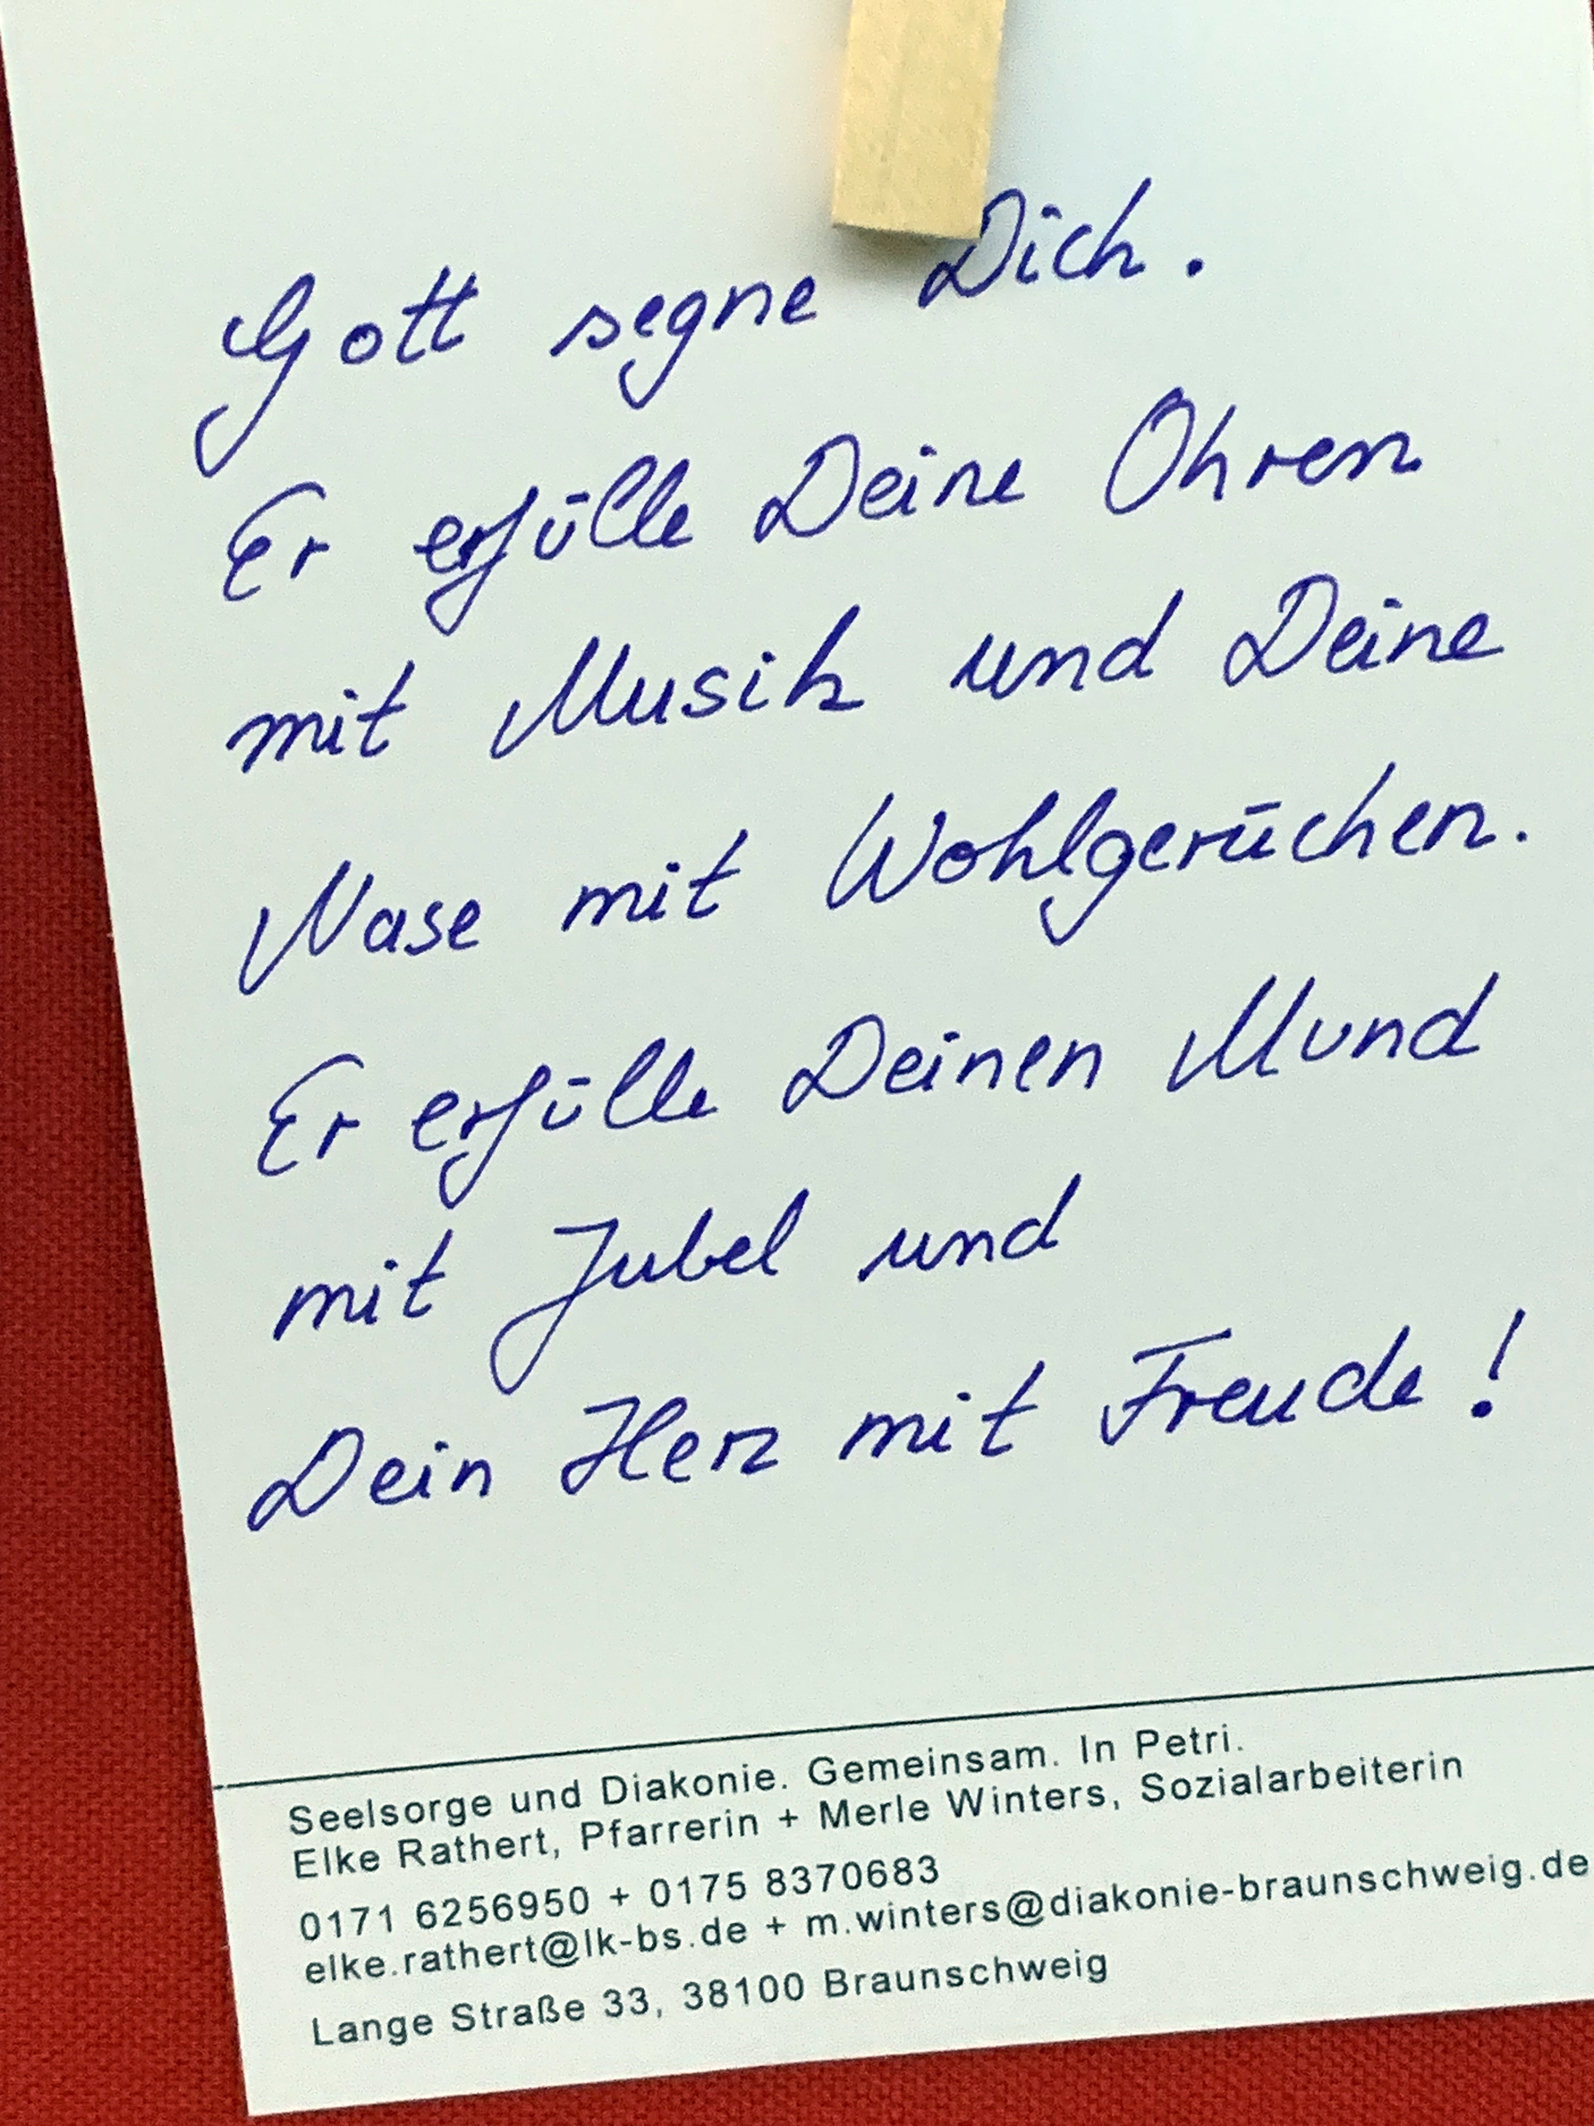 Gott segne Dich.
Er erfülle Deine Ohren
mit Musik und Deine
Nase mit Wohlgerüchen.
Er erfülle Deinen Mund
mit Jubel und
Dein Herz mit Freude!
Seelsorge und Diakonie. Gemeinsam. In Petri.
Elke Rathert, Pfarrerin + Merle Winters, Sozialarbeiterin
0171 6256950 + 0175 8370683
elke.rathert@lk-bs.de + m.winters@diakonie-braunschweig.de
Lange Straße 33, 38100 Braunschweig